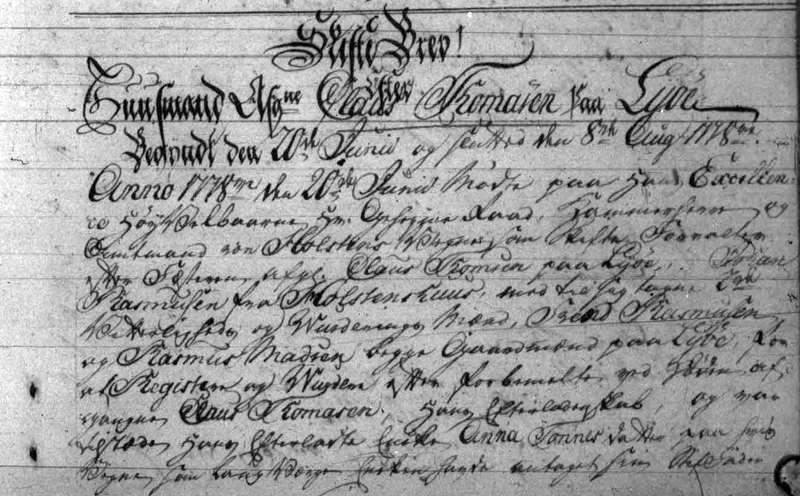 Skifte Brev!
Huusmand Afgne Claus Thomasen paa Lyøe
Begyndt den 20de Junii og sluttet den 8de Aug 1778
Anno 1778 den 20de Junii Mødte paa Hans Excellen-
ce Høyvelbaarne Hr. Raad, Kammerherre og
Amtmand von Holstens Vegne som Skifte Forvalter
efter Fæsteren afg. Claus Thomsen paa Lyøe,
Rasmusen fra Holstenshuus, med til sig tagne 2de
Vitterligheds og Vurderings Mænd, Rasmusen
og Rasmus Madsen begge Gaardmænd paa Lyøe, for
at Registere og Vurdere efter forbemelte ved Døden af-
gangne Claus Thomasen. Hans Efterladenskab, og var
tilstæde Hans Efterladte Encke Anna Tønnes datter paa hvis
Vegne som Laug Værge antaget sin